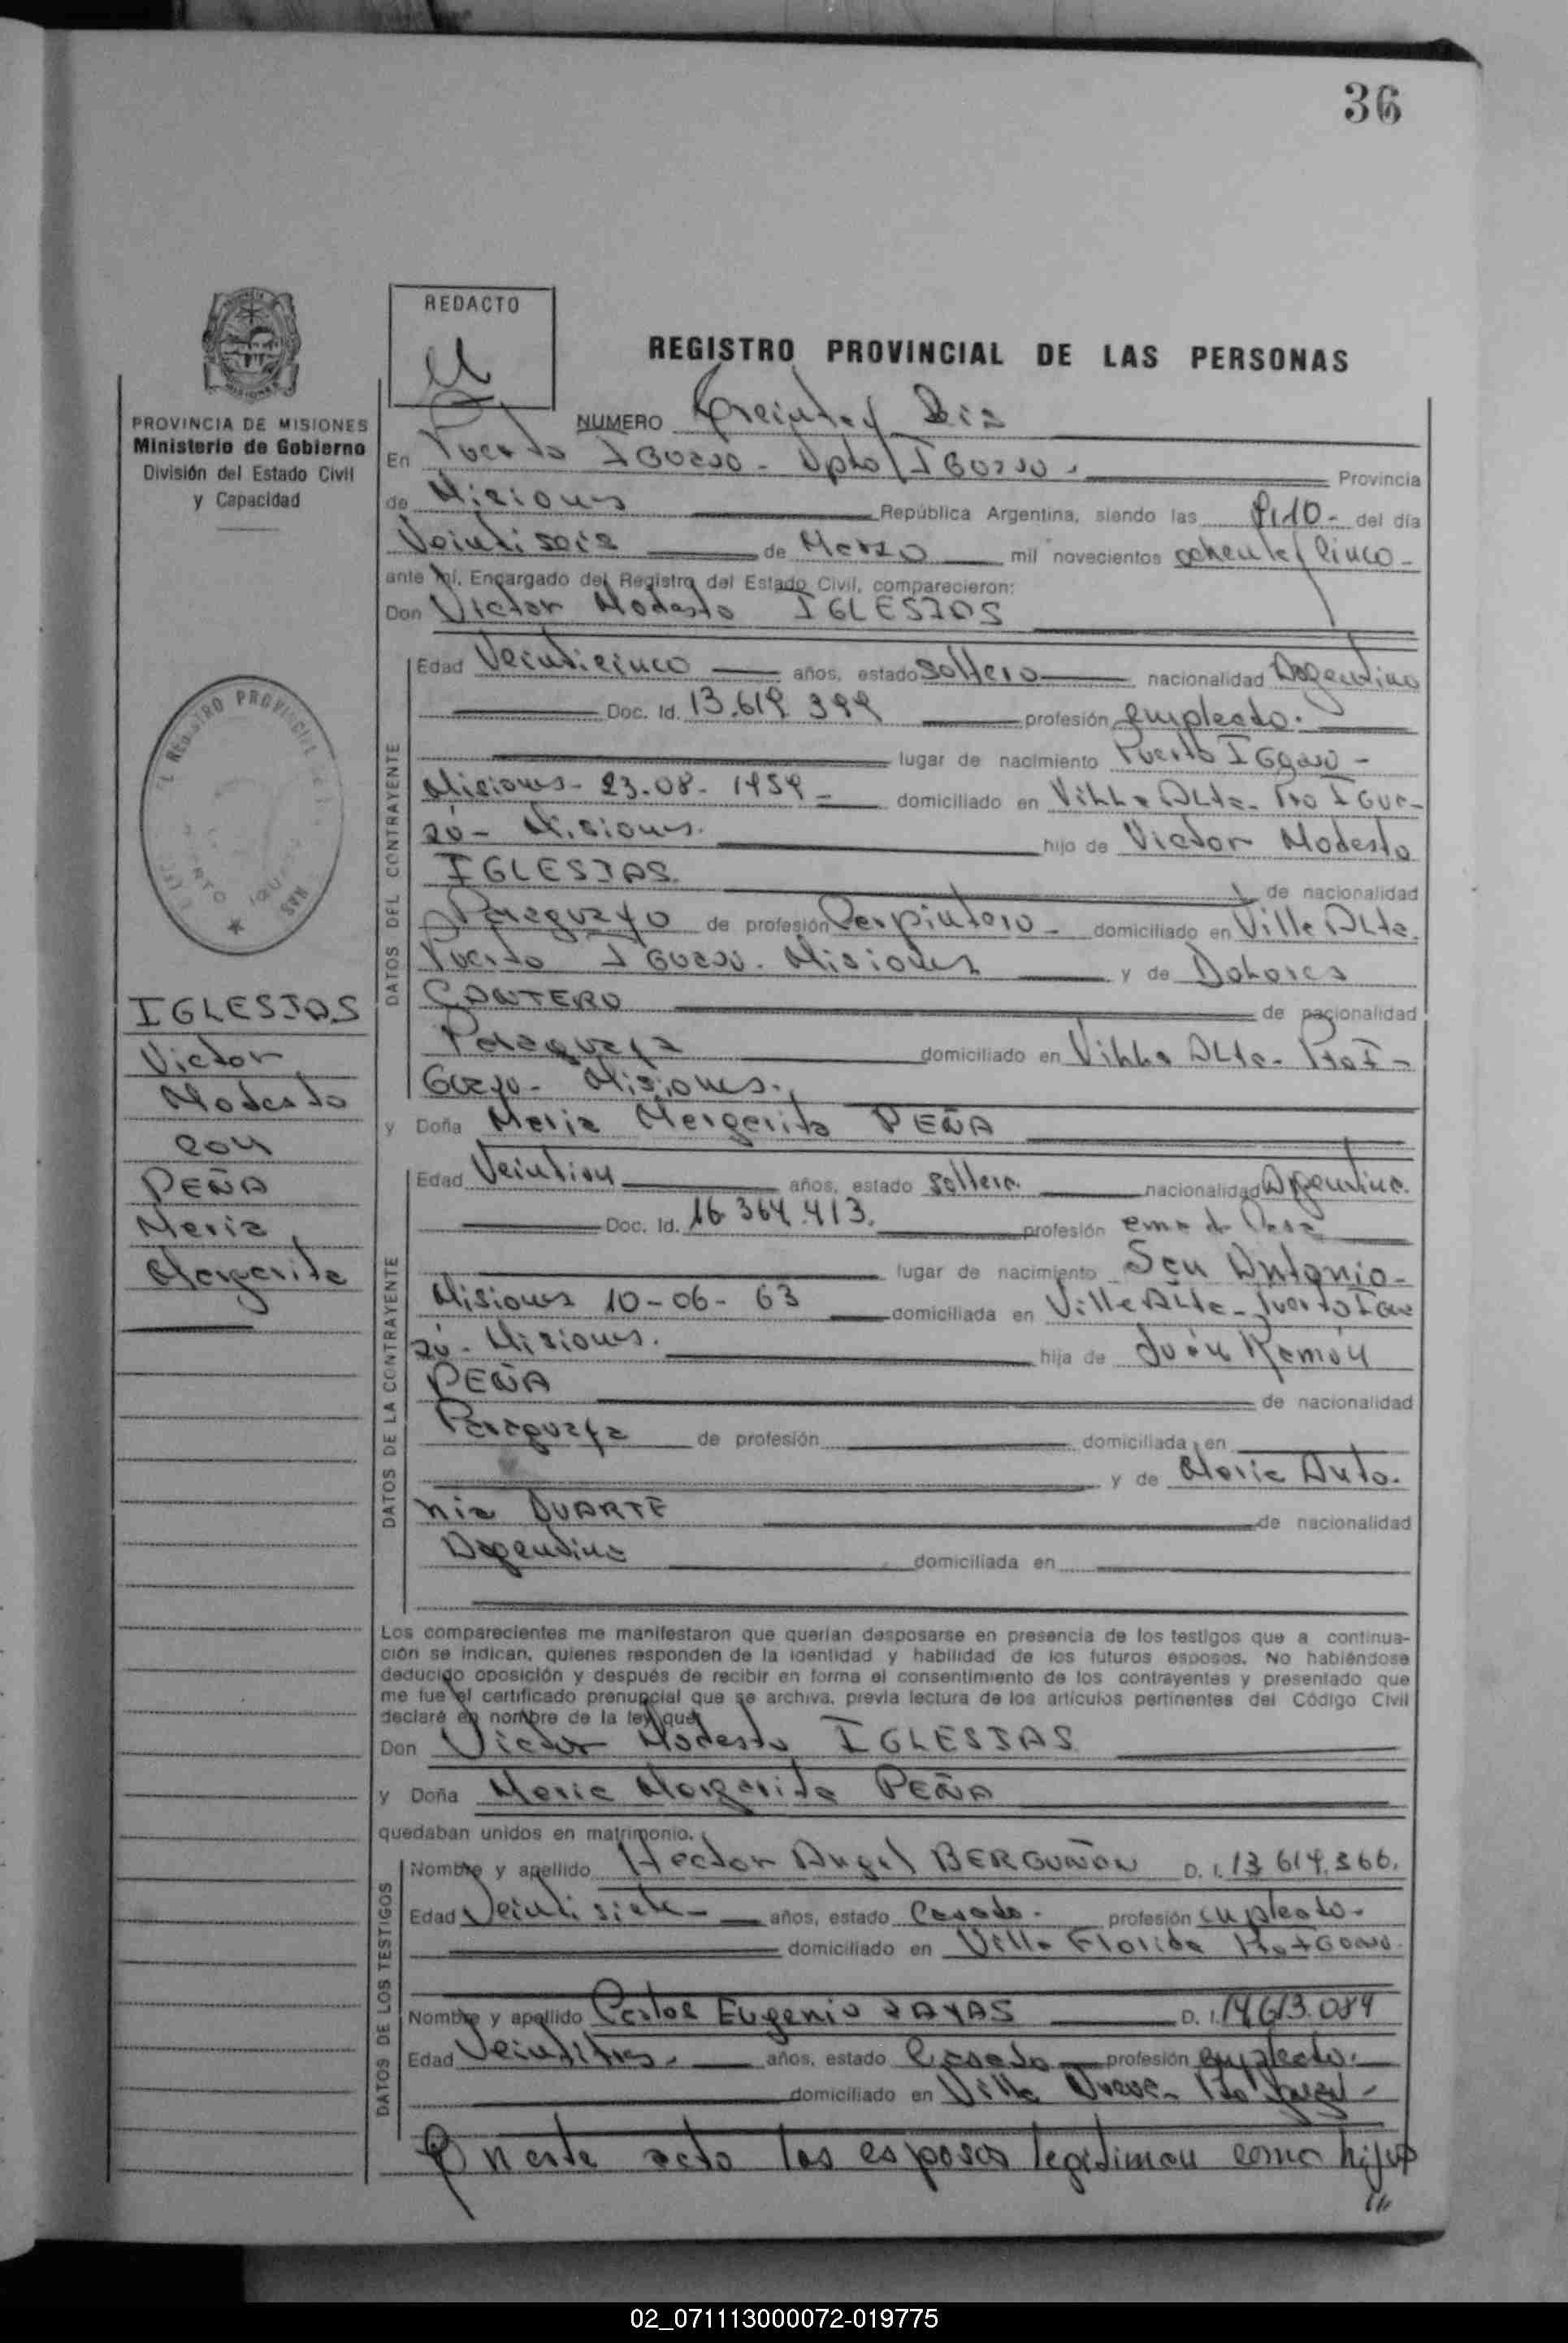 36
REDACTO
REGISTRO PROVINCIAL DE LAS PERSONAS
PROVINCIA DE MISIONES
Ministerio de Gobierno
División del Estado Civil
y Capacidad
NUMERO Treinta y Seis
En Puerto IGuazú - Dpto IGuazú. Provincia
de Misiones República Argentina, siendo las 9,10- del día
Veintiseis de Marzo mil novecientos ochenta y Cinco-
ante mí, Encargado del Registro del Estado Civil, comparecieron:
Don Victor Modesto IGLESIAS
IGLESIAS
Victor
Modesto
con
PEÑA
Maria
Margarita
DATOS DEL CONTRAYENTE
Edad Veinticinco años, estado soltero nacionalidad Argentino
Doc. Id. 13.619.399 profesión empleado.
lugar de nacimiento Puerto IGuazú -
Misiones- 23-08-1959- domiciliado en Villa Alta- Pto IGua-
zú- Misiones. hijo de Victor Modesto
IGLESIAS. de nacionalidad
Paraguayo de profesión Carpintero- domiciliado en Villa Alta.
Puerto IGuazú. Misiones y de Dolores
CANTERO de nacionalidad
Paraguaya domiciliado en Villa Alta- Pto I-
Guazú- Misiones.
y Doña Maria Margarita PEÑA
DATOS DE LA CONTRAYENTE
Edad Veintiun años, estado soltera. nacionalidad Argentina.
Doc. Id. 16.364.413. profesión ama de Casa
lugar de nacimiento San Antonio-
Misiones 10-06-63 domiciliada en Villa Alta- Puerto IGua
zú- Misiones. hija de Juán Ramón
PEÑA de nacionalidad
Paraguaya de profesión domiciliada en
y de Maria Anto-
nia DUARTE de nacionalidad
Argentina domiciliada en
Los comparecientes me manifestaron que querían desposarse en presencia de los testigos que a continua-
ción se indican, quienes responden de la identidad y habilidad de los futuros esposos. No habiéndose
deducido oposición y después de recibir en forma el consentimiento de los contrayentes y presentado que
me fue el certificado prenupcial que se archiva, previa lectura de los artículos pertinentes del Código Civil
declaré en nombre de la ley que
Don Victor Modesto IGLESIAS
y Doña Maria Margarita PEÑA
quedaban unidos en matrimonio.
DATOS DE LOS TESTIGOS
Nombre y apellido Hector Angel BERGUÑON D. I. 13.619.366.
Edad Veintisiete- años, estado Casado- profesión empleado-
domiciliado en Villa Florida Pto IGuazú.
Nombre y apellido Carlos Eugenio ZAYAS D. I. 14.613.089
Edad Veintitres- años, estado Casado profesión empleado.
domiciliado en Villa Nueva- Pto Iguazú-
En este acto los esposos legitiman como hijos
///
02_071113000072-019775